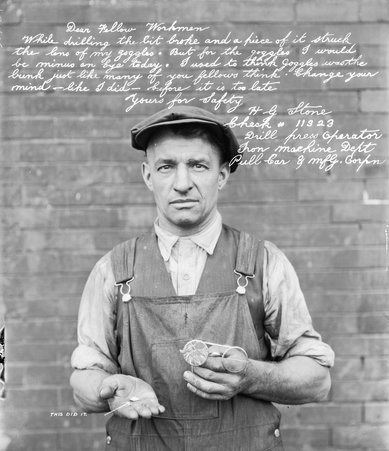 Dear Fellow Workmen
While drilling the bit broke and a piece of it struck
the lens of my goggles. But for the goggles I would
be minus an eye today. I used to think goggles was the
bunk just like many of you fellows think. Change your
mind - like I did - before it is too late
Yours for Safety
H G Stone
Check # 11323
Drill press Operator
Iron machine Dept
Pull Car & mfg. Corpn
THIS DID IT.